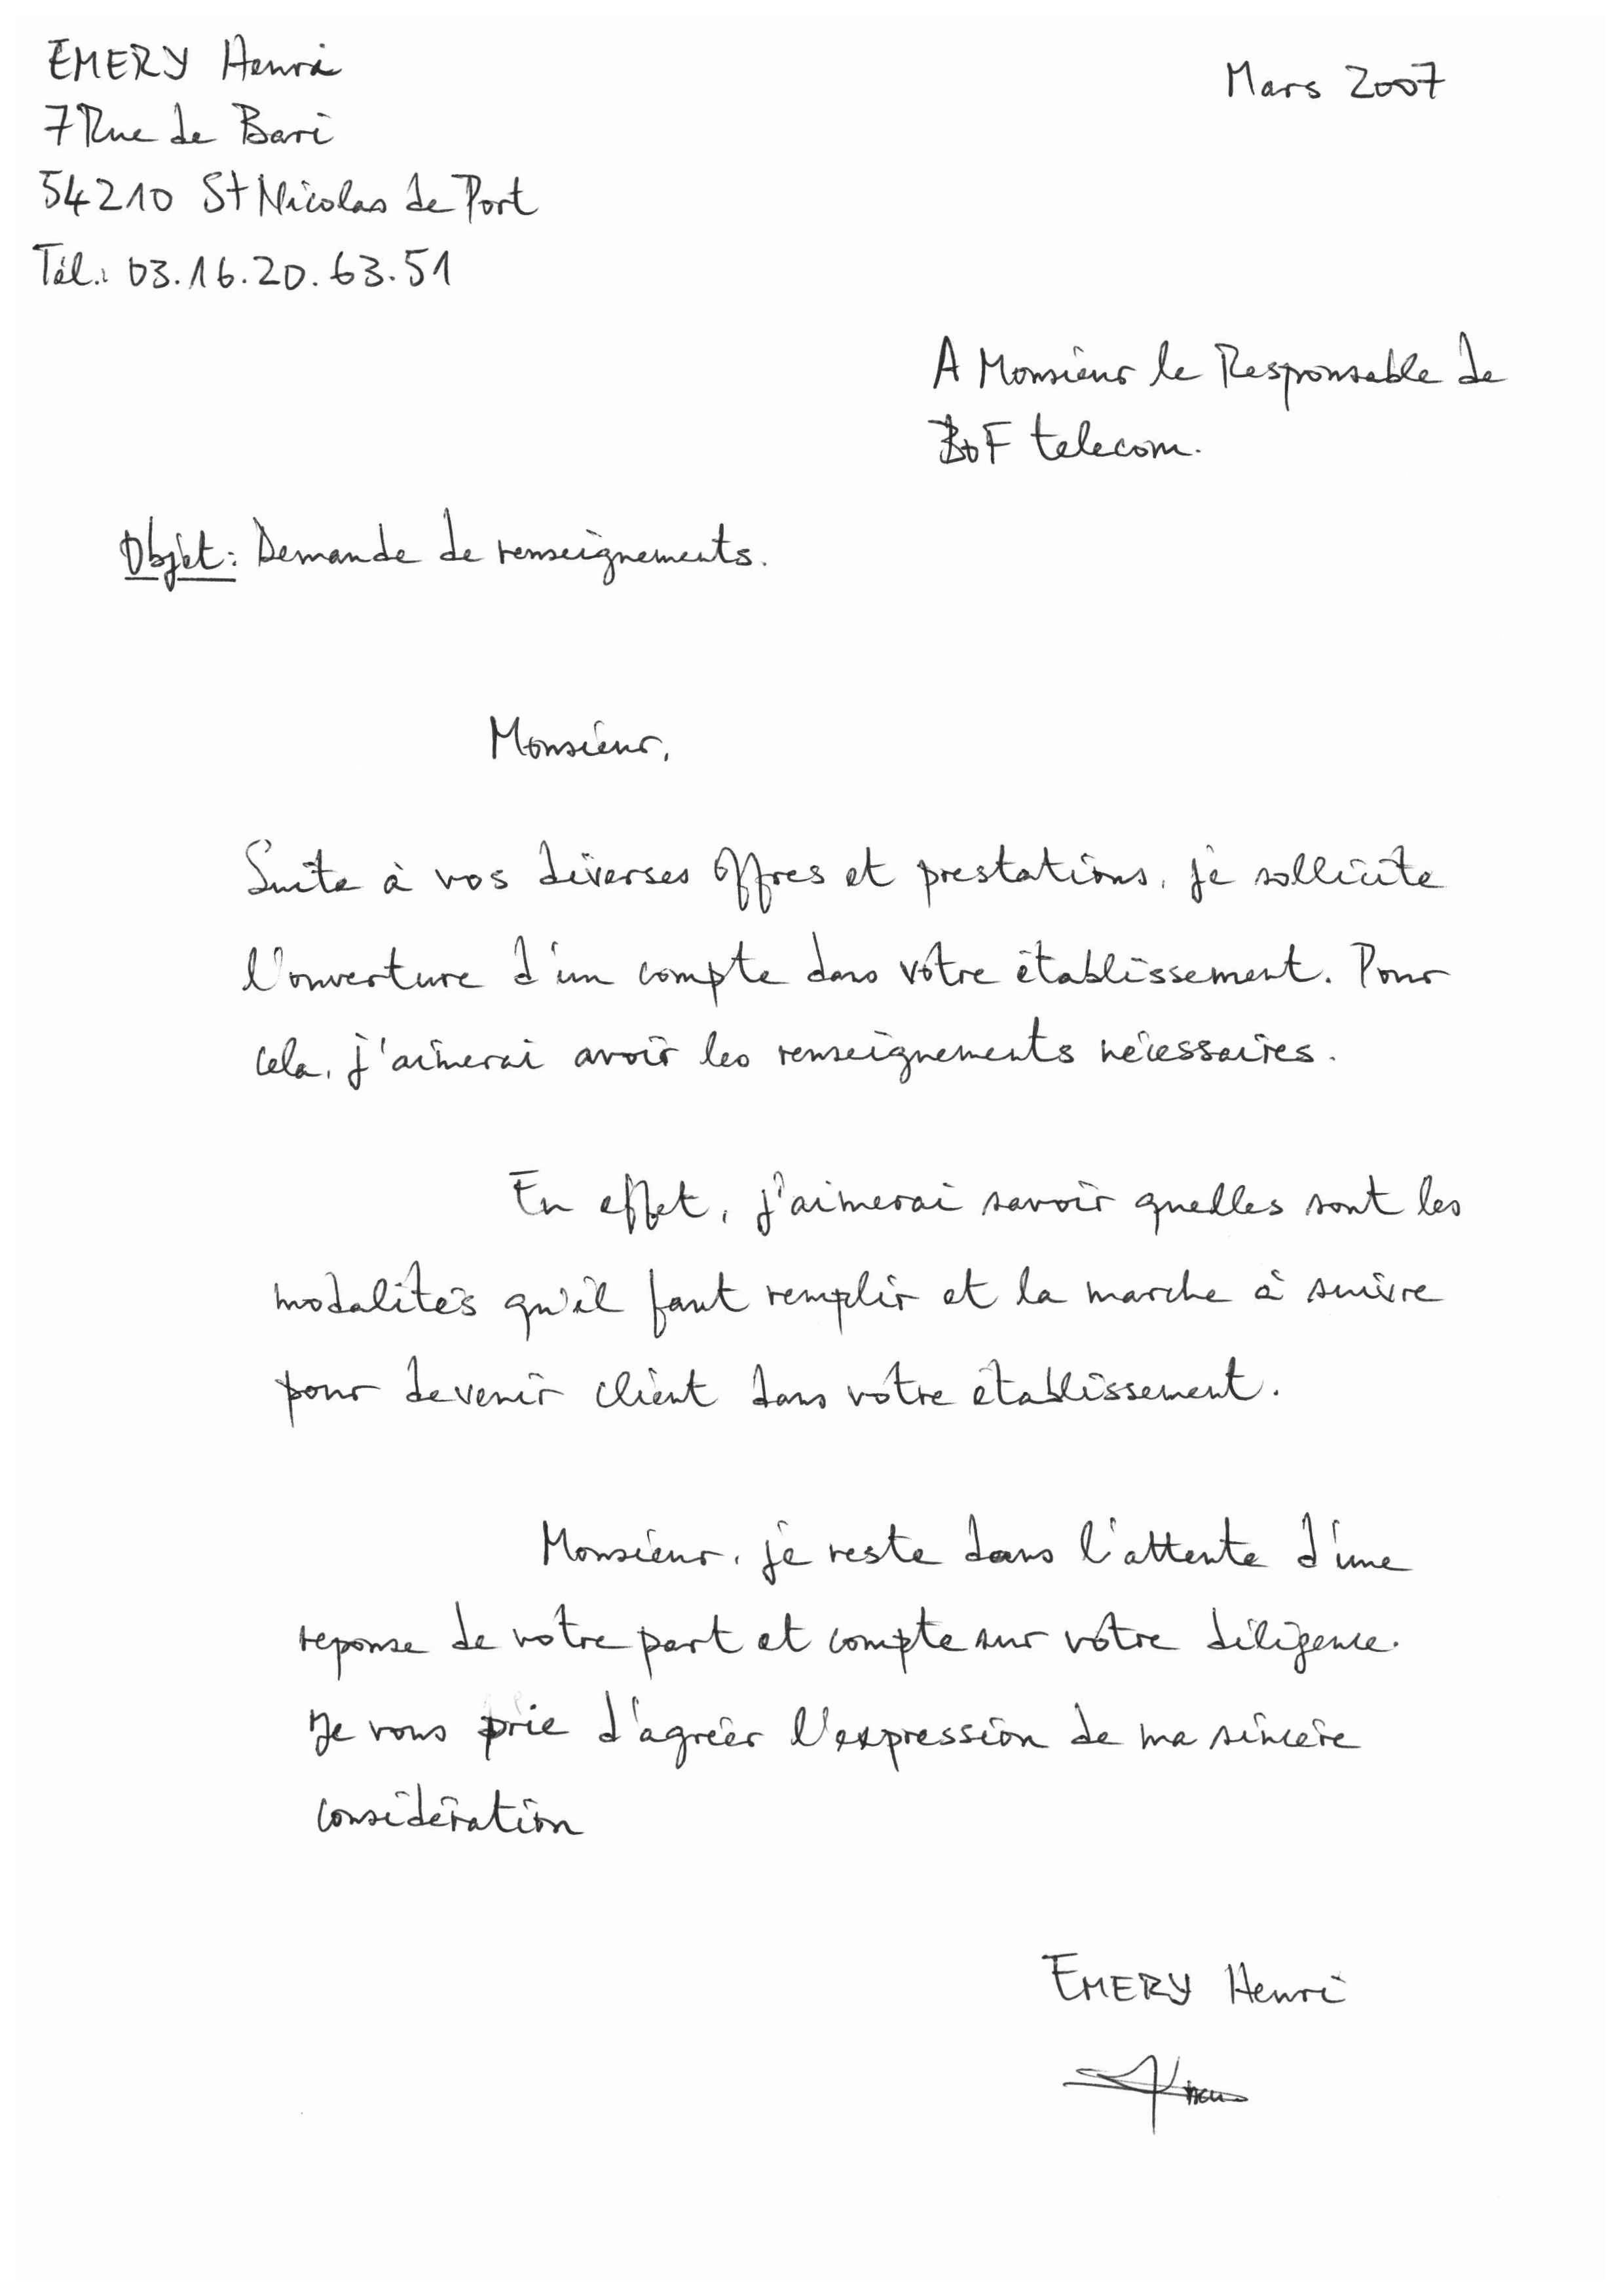 EMERY Henri
Mars 2007
7 Rue de Bari
54210 St Nicolas de Port
Tél.: 03.16.20.63.51
A Monsieur le Responsable de
BoF telecom.
Objet: Demande de renseignements.
Monsieur,
Suite à vos diverses offres et prestations, je sollicite
l'ouverture d'un compte dans votre établissement. Pour
cela, j'aimerai avoir les renseignements nécessaires.
En effet, j'aimerai savoir quelles sont les
modalités qu'il faut remplir et la marche à suivre
pour devenir client dans votre établissement.
Monsieur, je reste dans l'attente d'une
reponse de votre part et compte sur votre diligence.
Je vous prie d'agréer l'expression de ma sincère
considération
EMERY Henri